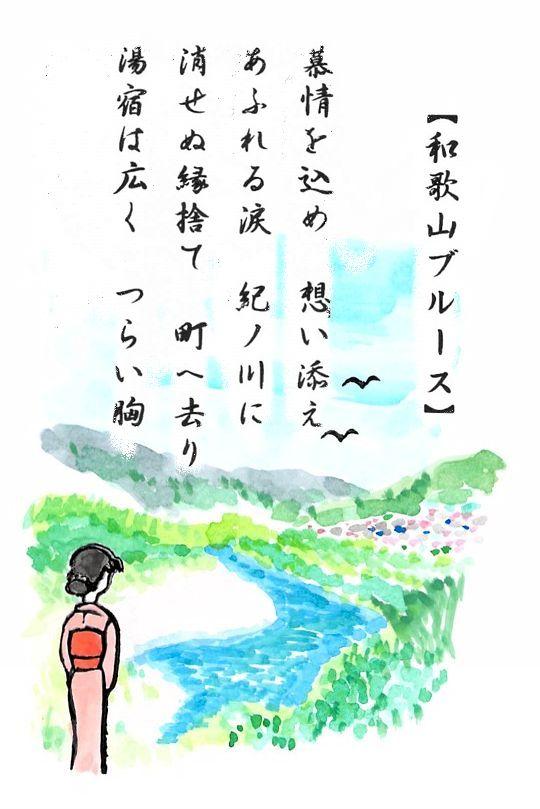 【和歌山ブルース】
慕情を込め　想い添え
あふれる涙　紀ノ川に
消せぬ縁捨て　町へ去り
湯宿は広く　つらい胸